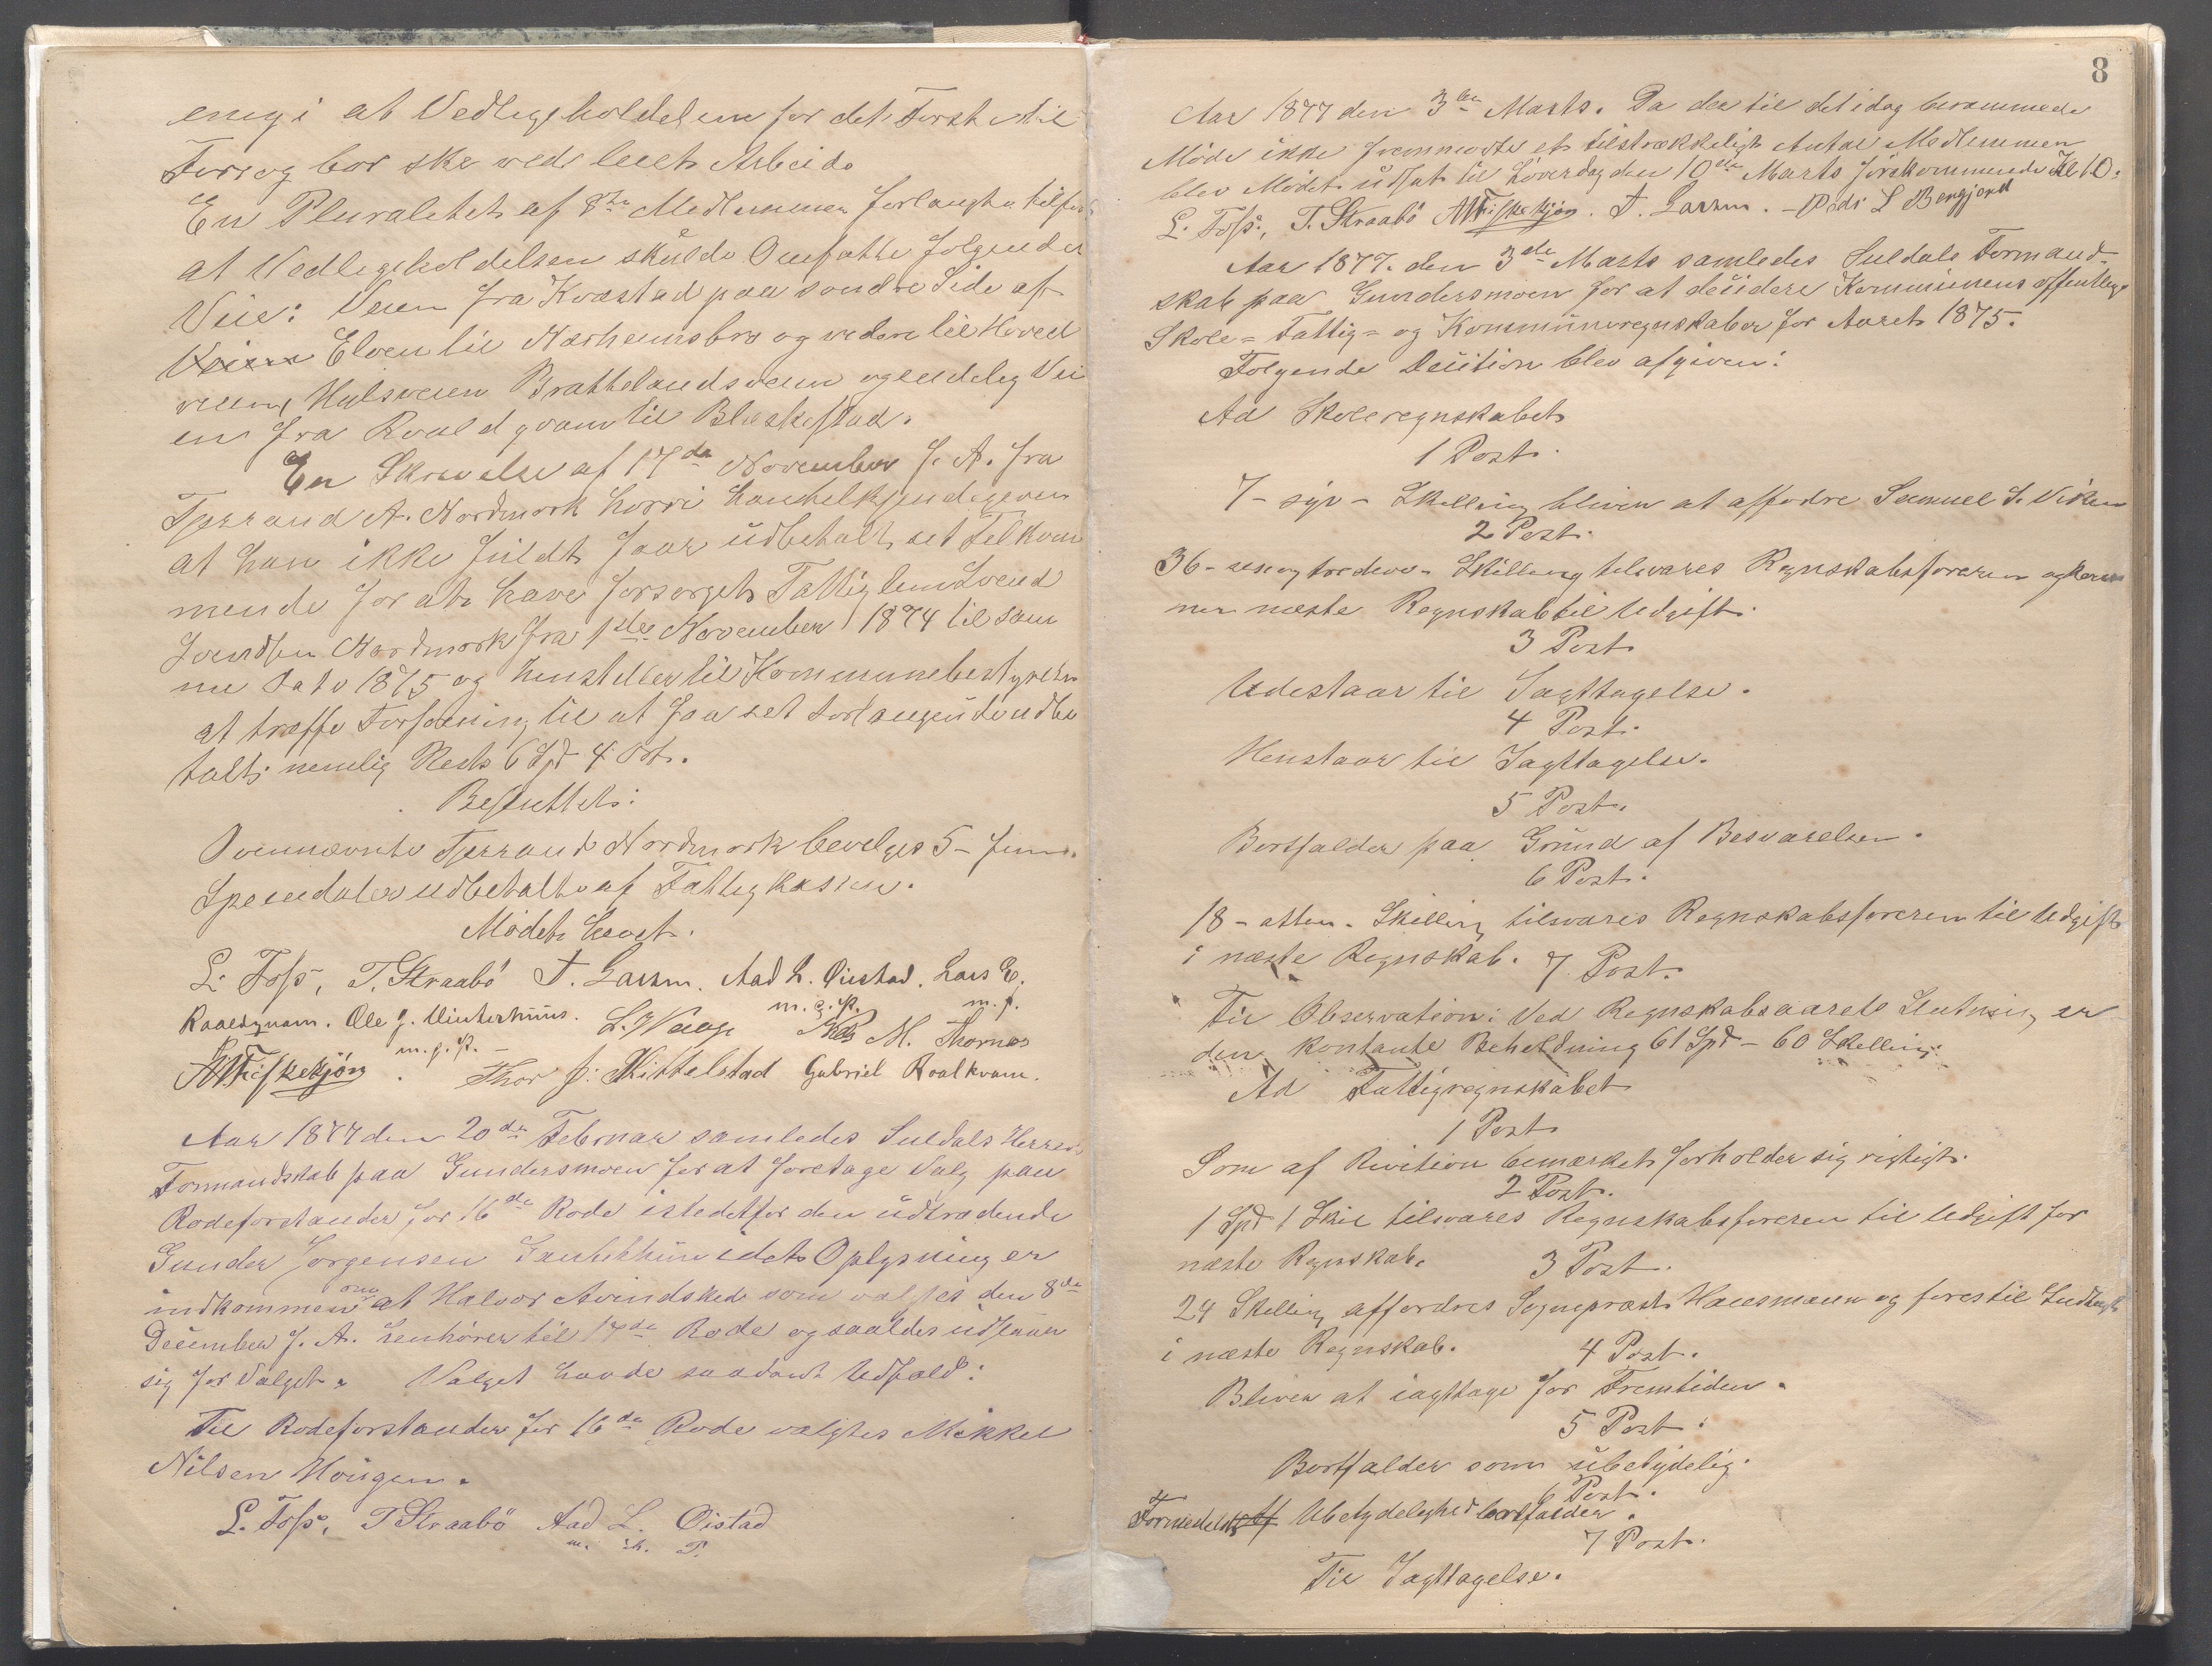 enig i at Vedligeholdelsen for det Første til
Forsøg bør ske ved leiet Arbeide
En Pluralitet af 8te Medlemmer forlangte tilført
at Vedligeholdelsen skulde Omfatte følgende
Veie: Veien fra Kvæstad paa søndre Side af
Elven til Nærheimsbro og videre til Hoved
veien, Hylsveien Brattelandsveien og endelig Vei
en fra Roaldqvam til Bleskestad.
En Skrivelse af 17de November f. A. fra
Tjerrand A. Nordmork hvori han tilkjendegiver
at han ikke fuldt faar udbetalt det Tilkom
mende for at have forsørget Fattiglem Svend
Svendsen Nordmork fra 1ste November 1874 til sam
me Dato 1875 og henstiller til Kommunebestyrelsen
at træffe Forføining til at faa det Forlangende udbe
talt, nemlig Rest 6 Spd 4 Ort.
Besluttet:
Ovennævnte Tjerrand Nordmork bevilges 5 - fem
Speciedaler udbetalt af Fattigkassen.
Mødet hævet.
L. Foss, T. Straabø T. Larsen. Aad L. Øiestad. Lars E.
m. f. P. m. f.
Roaldqvam. Ole J. Vinterhuus. L. Waage M. Thornæs
m. f. P.
A Fiskekjøn. Thor J: Kittelstad Gabriel Roalkvam.
Aar 1877 den 20de Februar samledes Suldals Herreds
Formandskab paa Gundersmoen for at foretage Valg paa
Rodeforstander for 16de Rode istedetfor den udtrædende
Gunder Jørgensen idet Oplysning er
indkommen om at Halvor som valgtes den 8de
December f. A. henhører til 17de Rode og saaledes
sig for Valget. Valget havde saadant Udfald:
Til Rodeforstander for 16de Rode valgtes Mikkel
Nilsen Hougen.
L. Foss, T Straabø Aad L. Öistad
m. P.
8
Aar 1877 den 3die Marts. Da der til det idag berammede
Møde ikke fremmødte et tilstrækkeligt Antal Medlemmer
blev Mødet udsat til Løverdag den 10de Marts førstkommende Kl 10.
L. Foss, T. Straabø A Fiskekjøn. T. Larsen. - L Bergjord
Aar 1877. den 3die Marts samledes Suldals Formand-
skab paa Gundersmoen for at decidere Kommunens offentlige
Skole- Fattig- og Kommuneregnskaber for Aaret 1875.
Følgende Decition blev afgiven:
Ad Skoleregnskabet
1 Post.
7 - syv - Skilling bliver at affordre Samuel S. Viken
2 Post.
36 - sex og tredive - Skilling tilsvares Regnskabsføreren og kom
mer næste Regnskab til Udgift.
3 Post.
Udestaar til Iagttagelse.
4 Post.
Henstaar til Iagttagelse.
5 Post.
Bortfalder paa Grund af Besvarelsen.
6 Post.
18 - atten - Skilling tilsvares Regnskabsføreren til Udgift
i næste Regnskab. 7 Post.
Til Observation: Ved Regnskabsaarets Slutning er
den kontante Beholdning 61 Spd - 60 Skilling.
Ad Fattigregnskabet
1 Post
Som af Revition bemærket forholder sig rigtigt.
2 Post.
1 Spd 1 Skil tilsvares Regnskabsføreren til Udgift for
næste Regnskab. 3 Post.
24 Skilling affordres Sogneprest Hansmann og føres til Indtægt
i næste Regnskab. 4 Post.
Bliver at iagttage for Fremtiden.
5 Post.
Bortfalder som übetydelig.
6 Post.
Formedelst Ubetydelighed bortfalder.
7 Post.
Til Iagttagelse.